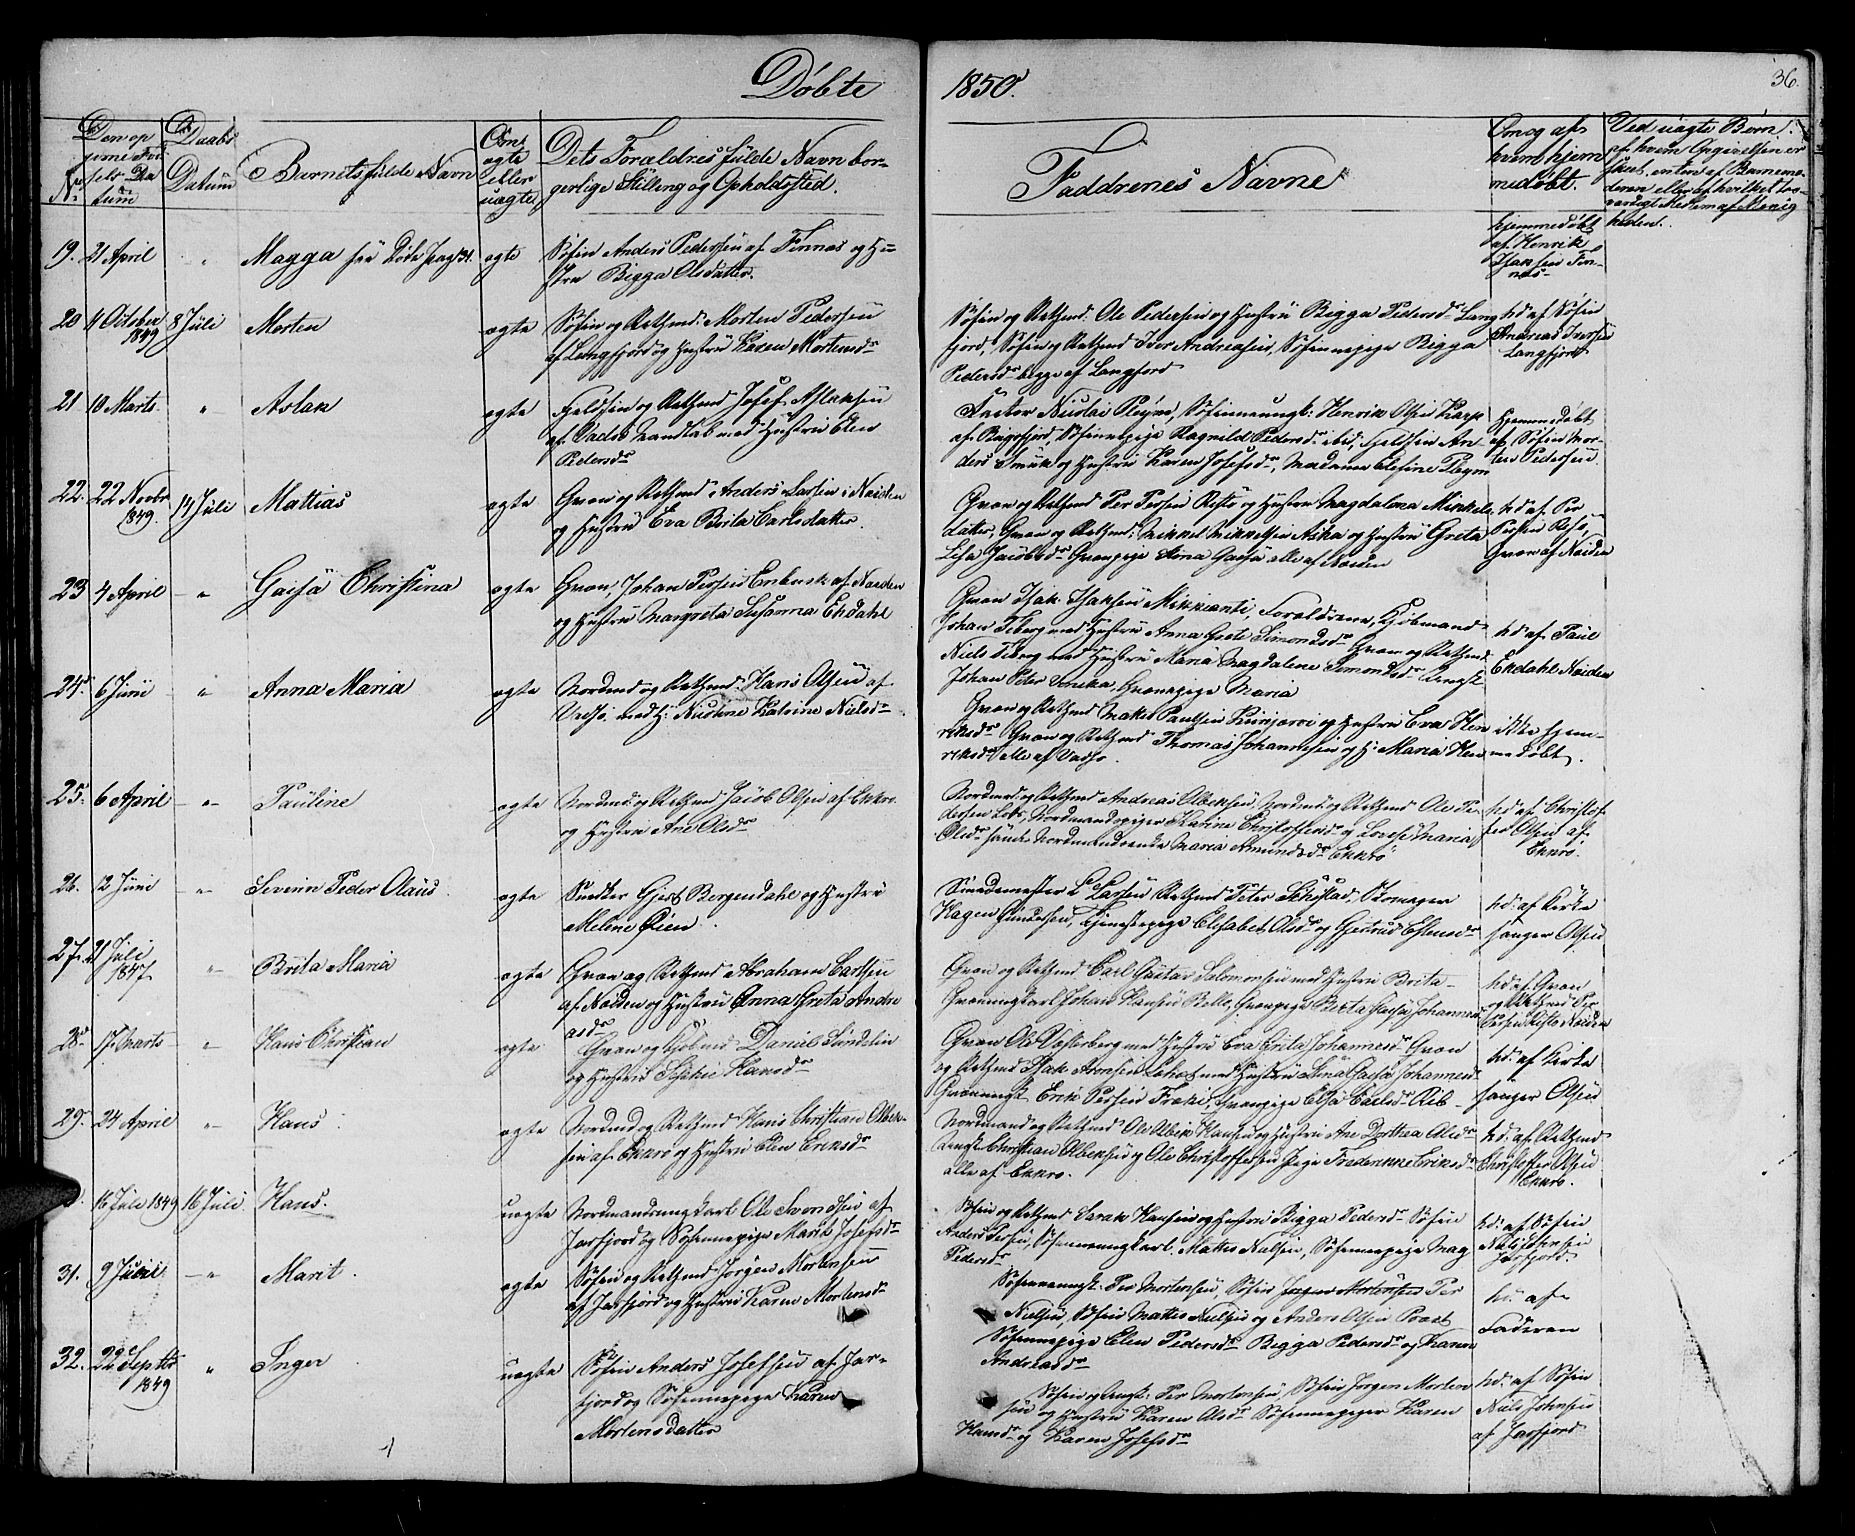 Døbte
1850.
36.
No
Den op
givne Fød
sels Da
tum
Daabs
Datum
Barnets fulde Navn
Om
egte
eller
uegte
Dets Forældres fulde Navn bor-
gerlige Stilling og Opholdsted.
Faddrenes Navne
Om og af
hvem hjem
medøbt.
Ved uægte Børn
af hvem Opgivelsen er
skeet, enten af Barnemo-
deren eller af hvilket tro-
værdigt Medlem af Menig
heden.
19. 21 April " Magga see Døde pag 31. egte
Søfin Anders Pedersen af Finnæs og Hu-
stru Bigga Olsdatter.
hjemmedøbt
af Henrik
Isaksen Fin-
næs
20 11 October 1849 8 Juli Morten egte
Søfin og Retsmd: Morten Pedersen
af Langfjord og Hustru Karen Mortensdr
Søfin og Retsmd: Ole Pedersen og Hustru Bigga Pedersdr Lang
fjord, Søfin og Retsmd Iver Andreasen, Søfinnepige Bigga
Pedersdr begge af Langfjord
hd af Søfin
Andreas Iversen
Langfjord
21 10 Marts " Aslak egte
Fjeldfin og Retsmd Josef Aslaksen
af Vadsø Landsab med Hustru Elen
Pedersdr
Factor Nicolai Pleym, Søfinneungk: Henrik Olsen Karp
af Bugøfjord, Søfinnepige Ragnild Pedersdr ibid, Fjeldfin An-
ders Smuk og Hustru Karen Josefsdr, Madame Pleym
Hjemmedøbt
af Søfin Mor-
ten Pedersen
22. 22 Novbr 1849. 14 Juli Mattias egte
Qvæn og Retsmd Anders Larsen i Neiden
og Hustru Eva Brita Carlsdatter.
Qvæn og Retsmd Per Persen Risto og Hustru Magdalena Mikkels-
datter, Qvæn og Retsmd: Mikkel Mikkelsen Aska og Hustru Greta
Lisa Jacobsdr Qvænpige Stina Gaisa alle af Neiden
hd af Per
Persen Risto,
Qvæn af Neiden
23 4 April " Gaisa Christina egte
Qvæn, Johan Persen Embusk af Neiden
og Hustru Margreta Susanna Ekdahl
Qvæn Isak Isaksen Mikkianti, Forældrene, Kjøbmand
Johan Feberg med Hustru Anna Greta Simonsdr Qvæn og Retsmd
Niels Feberg med Hustru Maria Magdalene Simonsdr Ungk
Johan Peter Venika, Qvænpige Maria
hd af Paul
Ekdahl Neiden
24 6 Juni " Anna Maria egte
Nordmd og Retsmd: Hans Olsen af
Vadsø med H: Nicoline Katrine Nielsdr
Qvæn og Retsmd Makel Paulsen Kurijervi og Hustru Eva Hen
riksdr Qvæn og Retsmd Thomas Johannesen og H: Maria Hen
riksdr alle af Vadsø
ikke hjem-
medøbt.
25. 6 April " Pauline egte
Nordmd og Retsmd Jacob Olsen af Ekkrø
og Hustru Ane Olsdr
Nordmd og Retsmd Andreas Olbeksen, Nordmd og Retsmd Ole Pe-
dersen, Nordmandspiger Karine Christoffersdr og Lovise Maria
Olsdr samt Nordmandsenke Maria Amundsdr Ekkrø
hd af Christof
fer Olsen af
Ekkrø.
26. 12 Juni " Severin Peder Olaus egte
Snedker Gjert Bergendahl og Hustru
Melene Øien.
Smedemester L Larsen, Retsmd Peter Schistad, Skomager
Hagen Gundersen, Tjenestepige Elisabet Olsdr og Gjertrud Estensdr
hd. af Kirke
sanger Olsen
27. 21 Juli 1847 " Brita Maria egte
Qvæn og Retsmd Abraham Carlsen
af Neiden og Hustru Anna Greta Andre
asdr
Qvæn og Retsmd Carl Gustav Salomonsen med Hustru Brita
Qvænungkarl Johan Hansen Bello, Qvænpige Brita Gaisa Johannesdr
hd af Qvæn
og Retsmd Per
Persen Risto Neiden
28. 17 Marts " Hans Christian egte
Qvæn og Kjøbmd Daniel Sundelin
og Hustru Sofie Hansdr
Qvæn Ole Vesterberg med Hustru Eva Greta Johannesdr Qvæn
og Retsmd Isak Aronsen med Hustru Stina Gaisa Johannesdr
Qvænungk Erik Persen Fræki, Qvænpige Elsa Carlsdr
hd: af Kirke
sanger Olsen
29. 24 April " Hans egte
Nordmd og Retsmd Hans Christian Olbek-
sen af Ekkrø og Hustru Elen Eriksdr
Nordmand og Retsmd Ole Olbek Hansen og Hustru Ane Dorthea Olsdr
Ungk Christian Olbeksen og Ole Christoffersen Pige Frederikke Eriksdr
alle af Ekkrø.
hd: af Retsmd
Christoffer Olsen
Ekkrø.
16 Juli 1849 16 Juli Hans. uegte
Nordmandsungkarl Ole Svendsen af
Jarfjord og Søfinnepige Marit Josefsdr
Søfin og Retsmd Israk Hansen og Hustru Bigga Pedersdr Søfin
Anders Persen, Søfinneungkarl Mattis Nielsen, Søfinnepige Mag
Pedersdr
hd: af Søfin
Nils Johnsen
Jarfjord
31. 9 Juni " Marit. egte
Søfin og Retsmd Jørgen Mortensen
af Jarfjord og Hustru Karen Mortensdr
Søfinneungk: Per Mortensen, Søfin Jørgen Mortensen Per
Nielsen, Søfin Mattis Nielsen og Anders Olsen Præst
Søfinnepige Elen Pedersdr Bigga Pedersdr og Karen
Andreasdr
hd: af
Faderen
32. 22 Septbr 1849 " Inger uegte
Søfin Anders Josefsen af Jar-
fjord og Søfinnepige Karen
Mortensdatter
Søfin og Ungk: Per Mortensen, Søfin Jørgen Morten
sen og Hustru Karen Olsdr Søfinnepiger Karen
Hansdr og Karen Josefsdr
hd: af Søfin
Niels Johnsen
af Jarfjord